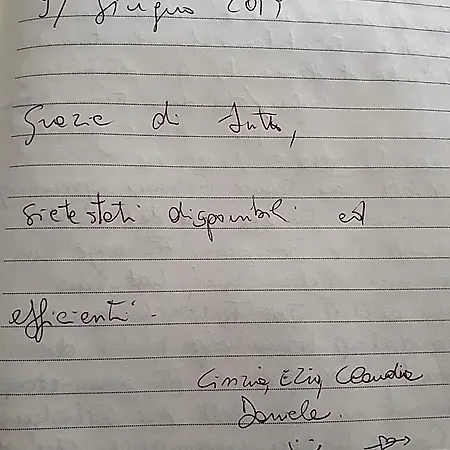 Giugno 2019
Grazie di tutto,
siete stati disponibili ed
efficienti.
Cinzia, Ezio, Claudia
Daniele.